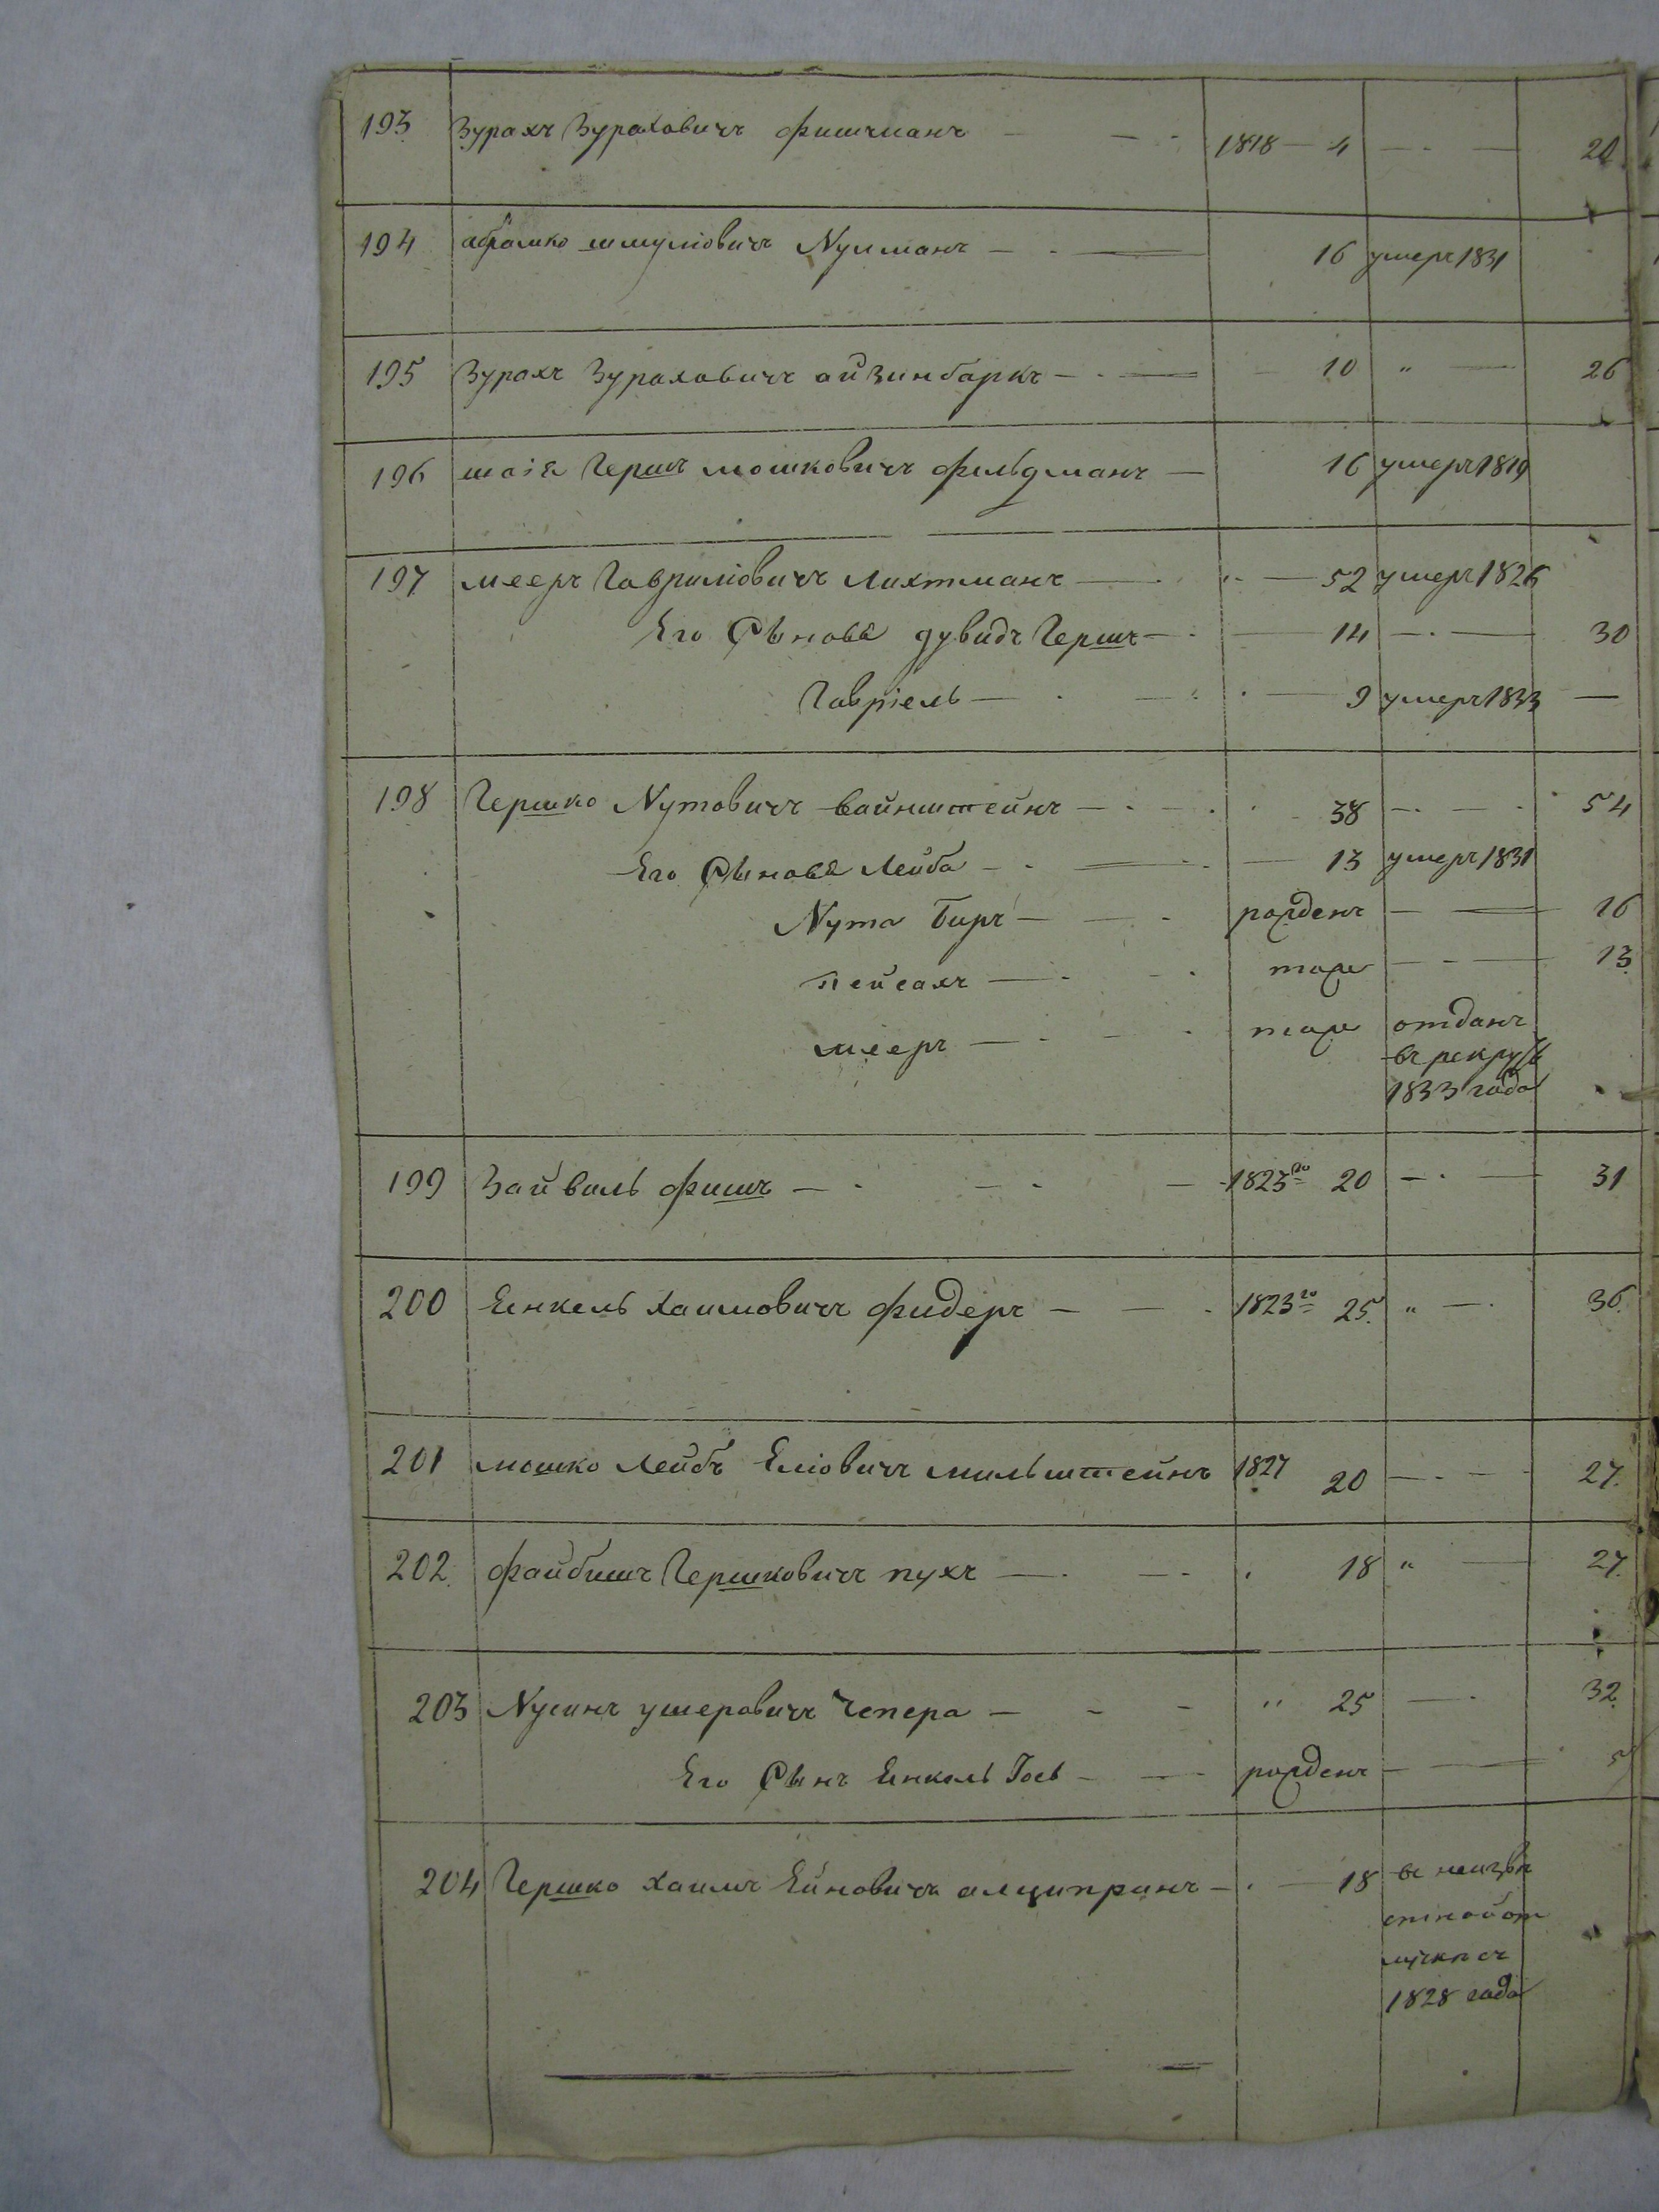 193 Зурахъ Зураховичъ Фишманъ — 1818 — 4 — 20
194 Абрамко Шмуліовичъ Нулманъ — 16 умеръ 1831
195 Зурахъ Зураховичъ Айзинбаркъ — 10 „ — 26
196 Шоіе Гершъ Мошковичъ Фельдманъ — 16 умеръ 1819
197 Мееръ Гавриліовичъ Лихтманъ — 52 умеръ 1826
Его Сыновѣ Дувидъ Гершъ — 14 — 30
Гавріель — 9 умеръ 1833 —
198 Гершко Нутовичъ Вайнштейнъ — 38 — 54
Его Сыновѣ Лейба — 13 умеръ 1831
Нута Биръ — рожденъ — 16
Пейсахъ — тож — 13
Мееръ — тож отданъ
въ рекруты
1833 года
199 Зайвель Фишъ — 1823го 20 — 31
200 Енкель Хаимовичъ Фидеръ — 1823го 25. „ — 36.
201 Мошко Лейбъ Еліовичъ Мильштейнъ 1827 20 — 27.
202. Файбишъ Гершковичъ Пухъ — 18 „ — 27.
203 Нусинъ Ушеровичъ Чепера — „ 25 — 32.
Его Сынъ Енкель Іось — рожденъ — 5
204 Гершко Хаимъ Ейновичъ Алципринъ — 18 въ неизвѣ
стной от
лучкѣ съ
1828 года